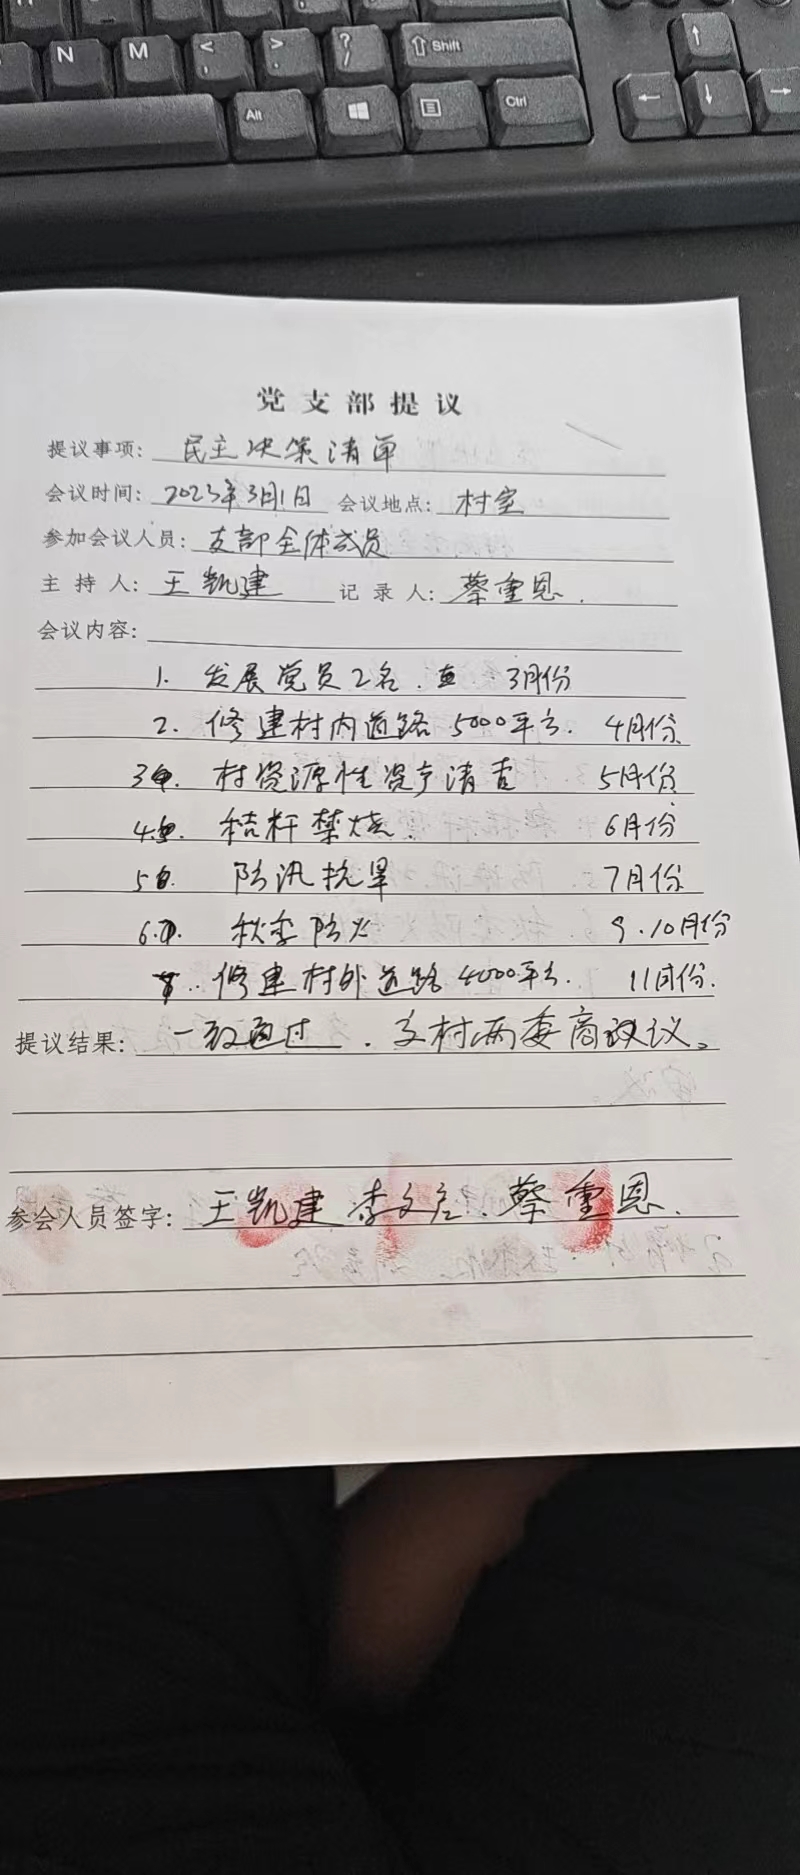 N M < , > . ? / Shift ↑
Alt Ctrl ← ↓ →
党支部提议
提议事项: 民主决策清单
会议时间: 2023年3月1日 会议地点: 村室
参加会议人员: 支部全体成员
主持人: 王凯建 记录人: 蔡重恩.
会议内容:
1. 发展党员2名. 3月份
2. 修建村内道路5000平方. 4月份
3. 村资源性资产清查 5月份
4. 秸秆禁烧. 6月份
5 防汛抗旱 7月份
6. 秋季防火 9.10月份
修建村外道路4000平方. 11月份.
提议结果: 一致通过. 交村两委商议。
参会人员签字: 王凯建 李文 . 蔡重恩.